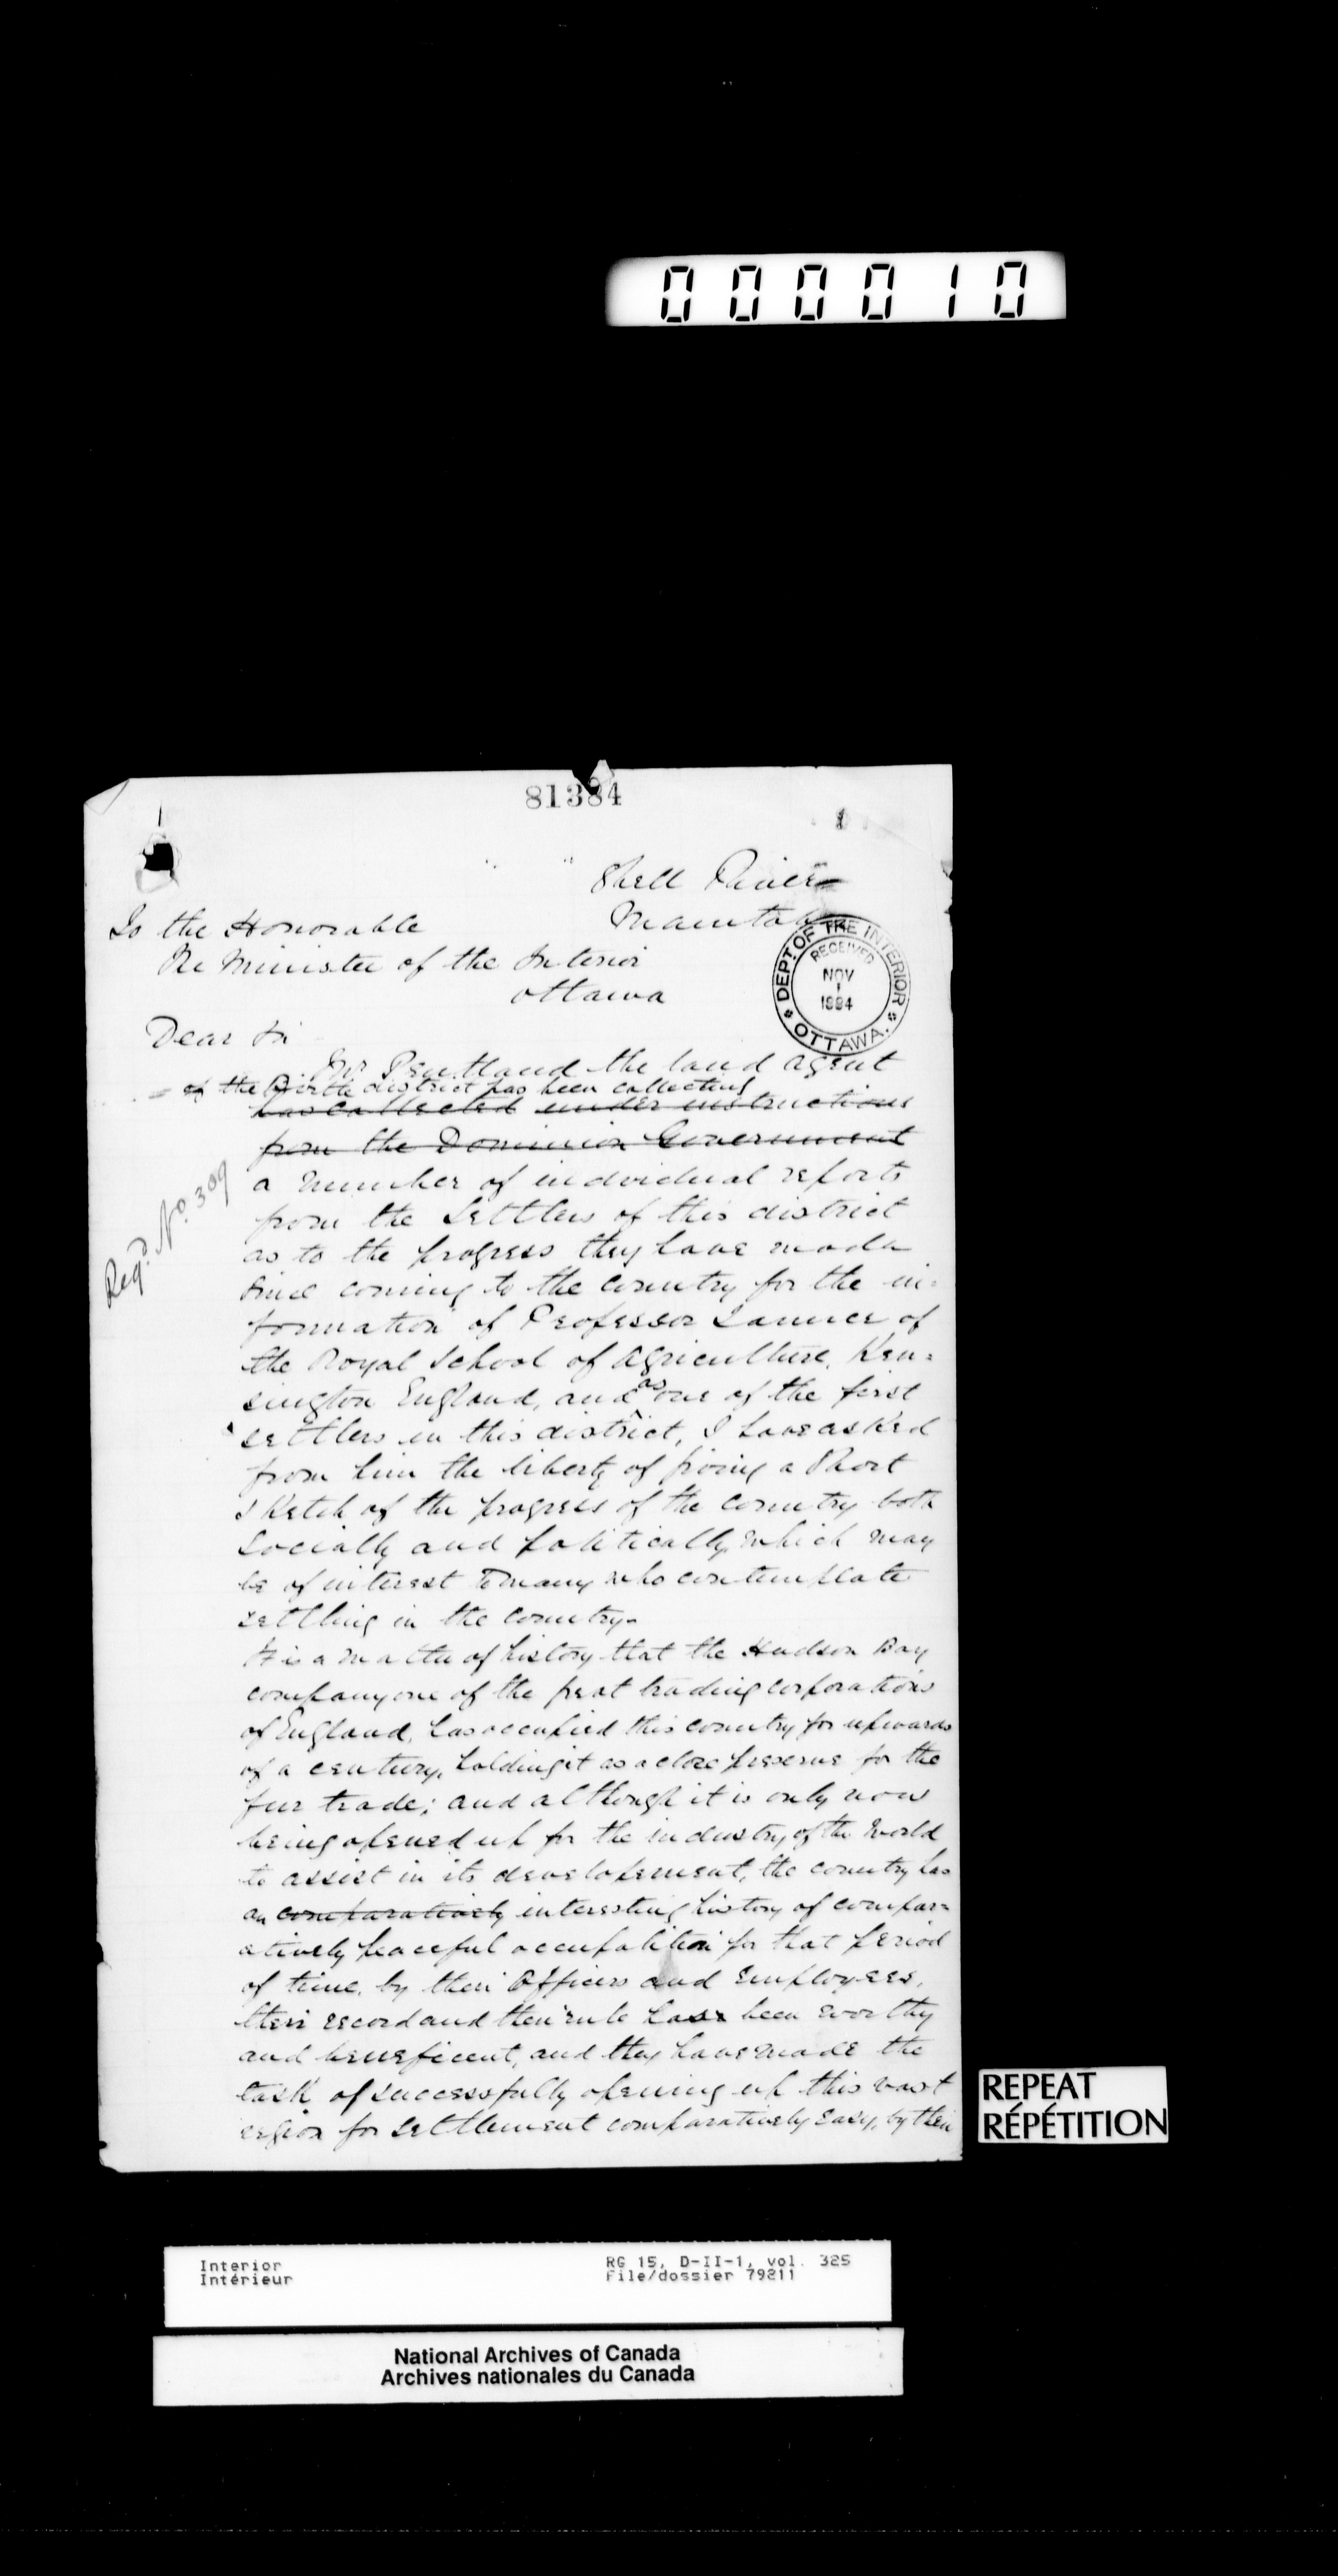 000010
81384
1
Shell River
Manitoba
To the Honorable
The Minister of the Interior
Ottawa
DEPT. OF THE INTERIOR
RECEIVED
NOV
1
1884
OTTAWA.
Dear Sir
Mr Pentland the land agent
of the Birtle district has been collecting
has collected under instructions
from the Dominion Government
a number of individual reports
from the Settlers of this district
as to the progress they have made
since coming to the country for the in=
formation of Professor Tanner of
the Royal School of Agriculture, Ken=
sington England, and as one of the first
settlers in this district, I have asked
from him the liberty of giving a Short
sketch of the progress of the country both
Socially and politically, which may
be of interest to many who contemplate
settling in the country.
It is a matter of history that the Hudson Bay
company one of the great trading corporations
of England, has occupied this country for upwards
of a century, holding it as a close preserve for the
fur trade; and although it is only now
being opened up for the industry of the World
to assist in its developement, the country has
an comparatively interesting history of compar=
atively peaceful occupatition for that period
of time, by their Officers and Employees,
their record and their rule has been worthy
and beneficent, and they have made the
task of successfully opening up this vast
region for settlement comparatively easy, by their
Reg.d No. 309
REPEAT
RÉPÉTITION
Interior
Intérieur
RG 15, D-II-1, vol. 325
File/dossier 79211
National Archives of Canada
Archives nationales du Canada